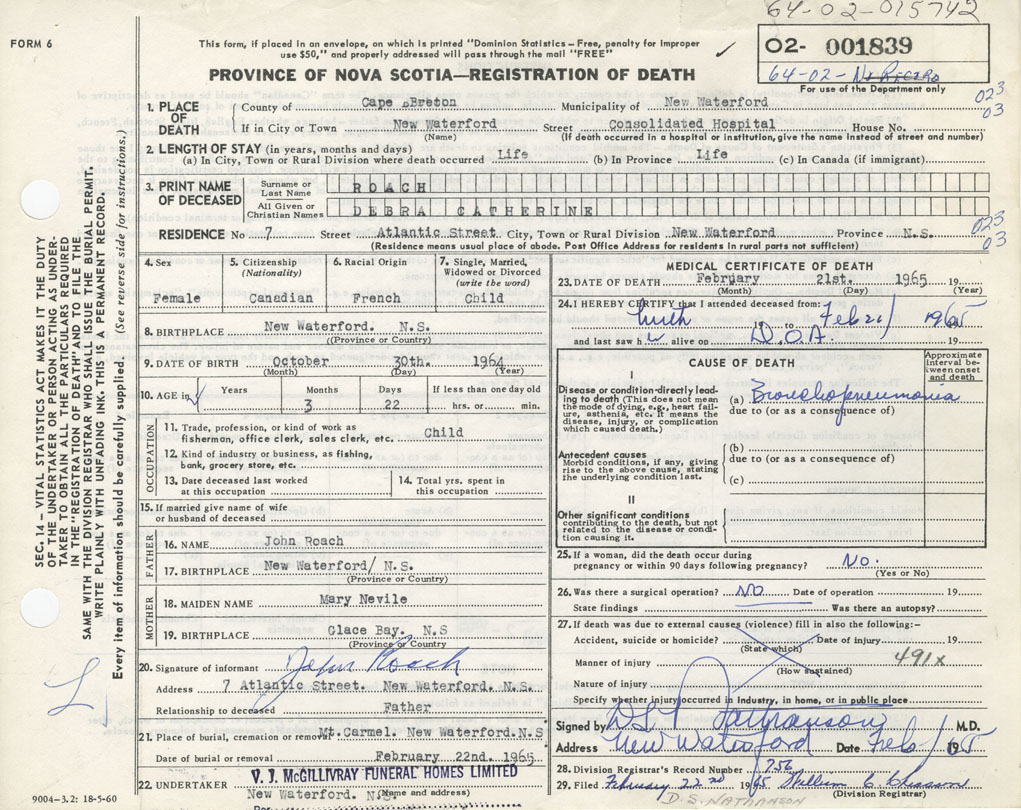 64-02-015742
FORM 6
This form, if placed in an envelope, on which is printed "Dominion Statistics – Free, penalty for improper
use $50," and properly addressed will pass through the mail "FREE"
02- 001839
64-02-
For use of the Department only
PROVINCE OF NOVA SCOTIA—REGISTRATION OF DEATH
023
03
1. PLACE OF DEATH
County of Cape Breton Municipality of New Waterford
If in City or Town New Waterford Street Consolidated Hospital House No.
(Name) (If death occurred in a hospital or institution, give the name instead of street and number)
2. LENGTH OF STAY (in years, months and days)
(a) In City, Town or Rural Division where death occurred Life (b) In Province Life (c) In Canada (if immigrant)
3. PRINT NAME OF DECEASED
Surname or Last Name ROACH
All Given or Christian Names DEBRA CATHERINE
RESIDENCE No 7 Street Atlantic Street. City, Town or Rural Division New Waterford Province N.S.
(Residence means usual place of abode. Post Office Address for residents in rural parts not sufficient)
023
03
4. Sex
Female
5. Citizenship
(Nationality)
Canadian
6. Racial Origin
French
7. Single, Married,
Widowed or Divorced
(write the word)
Child
8. BIRTHPLACE New Waterford. N.S.
(Province or Country)
9. DATE OF BIRTH October 30th. 1964
(Month) (Day) (Year)
10. AGE in
Years Months Days If less than one day old
3 22 hrs. or min.
OCCUPATION
11. Trade, profession, or kind of work as
fisherman, office clerk, sales clerk, etc. Child
12. Kind of industry or business, as fishing,
bank, grocery store, etc.
13. Date deceased last worked
at this occupation
14. Total yrs. spent in
this occupation
15. If married give name of wife
or husband of deceased
FATHER
16. NAME John Roach
17. BIRTHPLACE New Waterford/ N.S.
(Province or Country)
MOTHER
18. MAIDEN NAME Mary Nevile
19. BIRTHPLACE Glace Bay. N.S
(Province or Country)
20. Signature of informant John Roach
Address 7 Atlantic Street. New Waterford. N.S.
Relationship to deceased Father
21. Place of burial, cremation or removal Mt.Carmel. New Waterford.N.S
Date of burial or removal February 22nd. 1965
22. UNDERTAKER V. J. McGILLIVRAY FUNERAL HOMES LIMITED
New Waterford. N.S.
(Name and address)
MEDICAL CERTIFICATE OF DEATH
23. DATE OF DEATH February 21st. 1965 19
(Month) (Day) (Year)
24. I HEREBY CERTIFY that I attended deceased from:
birth 19 to Feb 21/ 1965
and last saw h alive on D.O.A. 19
CAUSE OF DEATH
Approximate
interval between onset
and death
I
Disease or condition directly leading to death (This does not mean
the mode of dying, e.g., heart failure, asthenia, etc. It means the
disease, injury, or complication
which caused death.)
(a) Bronchopneumonia
due to (or as a consequence of)
Antecedent causes
Morbid conditions, if any, giving
rise to the above cause, stating
the underlying condition last.
(b)
due to (or as a consequence of)
(c)
II
Other significant conditions
contributing to the death, but not
related to the disease or condition causing it.
25. If a woman, did the death occur during
pregnancy or within 90 days following pregnancy? No.
(Yes or No)
26. Was there a surgical operation? NO Date of operation 19
State findings Was there an autopsy?
27. If death was due to external causes (violence) fill in also the following:-
Accident, suicide or homicide? Date of injury 19
(State which)
Manner of injury 491x
(How sustained)
Nature of injury
Specify whether injury occurred in industry, in home, or in public place
Signed by Nathanson M.D.
Address New Waterford Date Feb / 1965
28. Division Registrar's Record Number 756
29. Filed February 22nd 1965 William
(Division Registrar)
D.S. NATHANSON
9004-3.2: 18-5-60
SEC. 14 – VITAL STATISTICS ACT MAKES IT THE DUTY
OF THE UNDERTAKER OR PERSON ACTING AS UNDERTAKER TO OBTAIN ALL THE PARTICULARS REQUIRED
IN THE "REGISTRATION OF DEATH" AND TO FILE THE
SAME WITH THE DIVISION REGISTRAR WHO SHALL ISSUE THE BURIAL PERMIT.
WRITE PLAINLY WITH UNFADING INK. THIS IS A PERMANENT RECORD.
Every item of information should be carefully supplied. (See reverse side for instructions.)